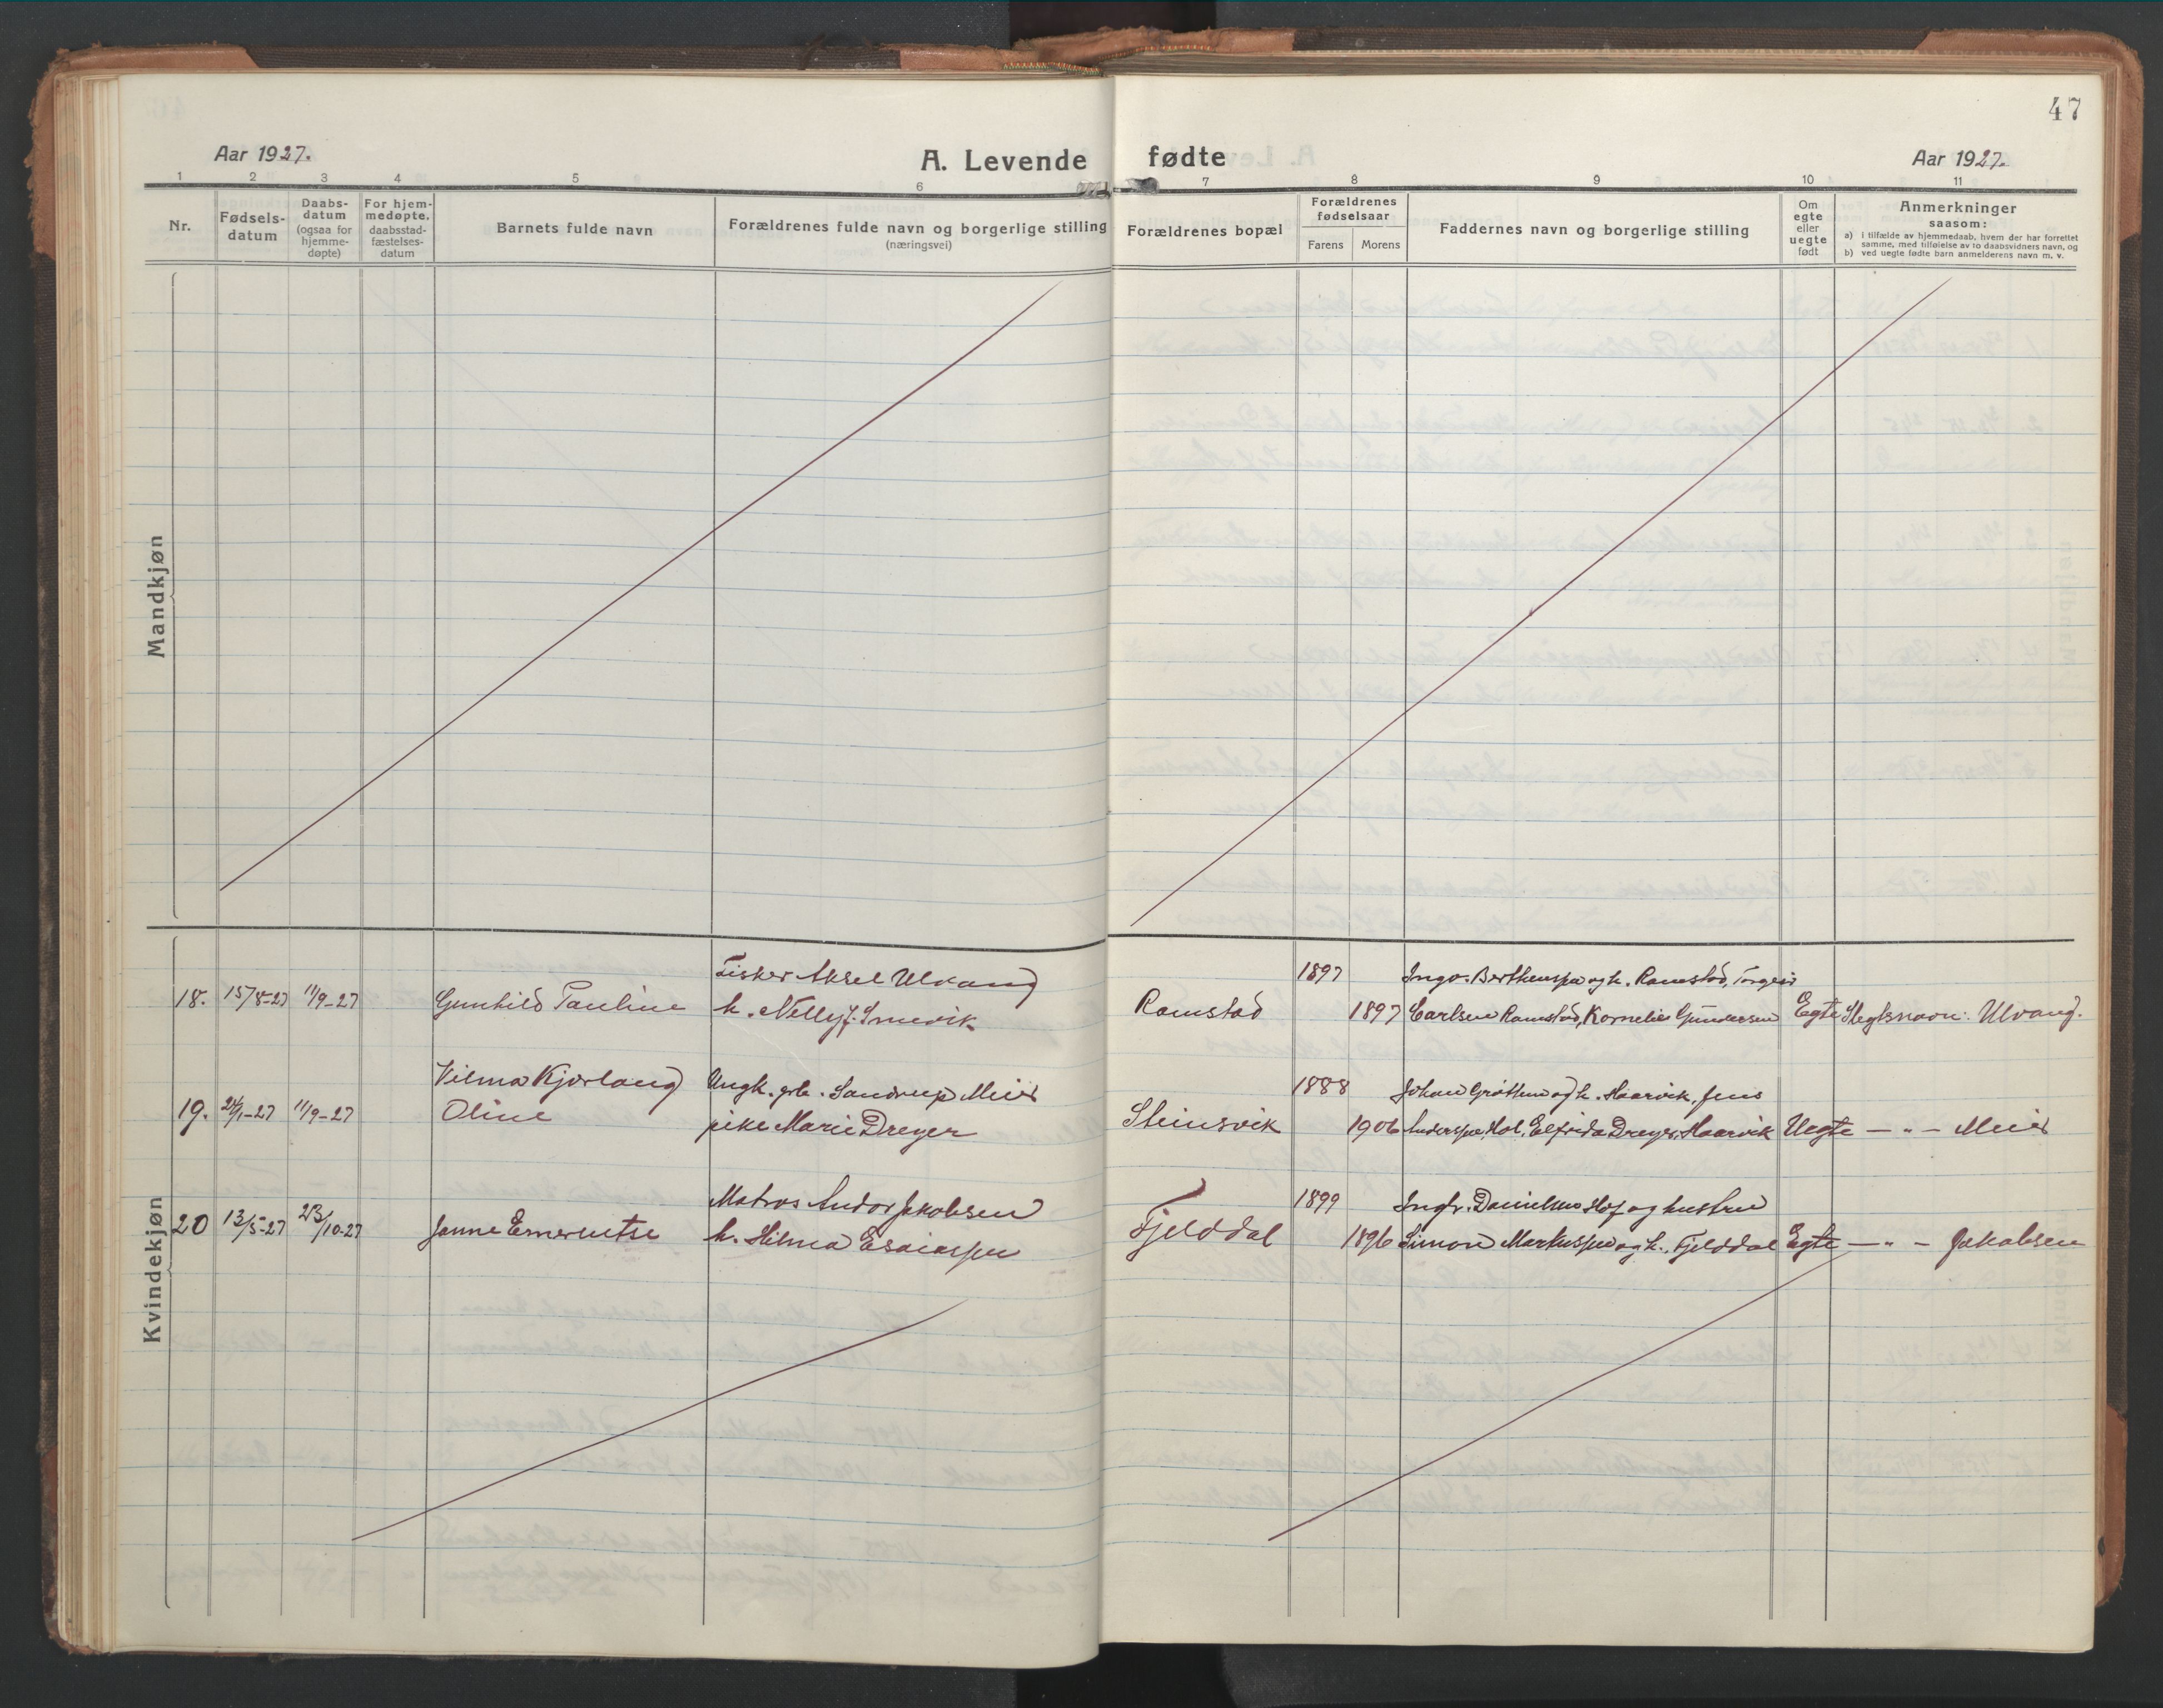 47
Aar 1927.
A. Levende fødte
Aar 1927.
1 2 3 4 5 6 7 8 9 10 11
Nr.
Fødsels-
datum
Daabs-
datum
(ogsaa for
hjemme-
døpte)
For hjem-
medøpte.
daabsstad-
fæstelses-
datum
Barnets fulde navn
Forældrenes fulde navn og borgerlige stilling
(næringsvei)
Forældrenes bopæl
Forældrenes
fødselsaar
Farens Morens
Faddernes navn og borgerlige stilling
Om
egte
eller
uegte
født
Anmerkninger
saasom:
a) i tilfælde av hjemmedaab, hvem der har forrettet
samme, med tilføielse av to daabsvidners navn, og
b) ved uegte fødte barn anmelderens navn m. v.
Mandkjøn
Kvindekjøn
Fisker Aksel Ulvang 1897
18. 15/8-27 11/9-27 Gunhild Pauline h. Nelly J. Ramstad 1897 Carlsen Ramstad, Kornelie Gundersen Egte Slegtsnavn: Ulvang.
Vilma Kjørlaug Ungk. Sandrup Meier 1888 Johan og h. Haarvik, Jens
19. 11/9-27 Oline pike Marie Dreyer Steinsvik 1906 Elfrida Dreyer, Haarvik Uegte — " — Meier
Matros Andor Jakobsen 1899 Ingv. Danielsen og hustru
20 13/5-27 23/10-27 Janne Emerentse h. Hilma Esaiassen Fjelddal 1896 Simon Markussen og h., Fjelddal Egte — " — Jakobsen